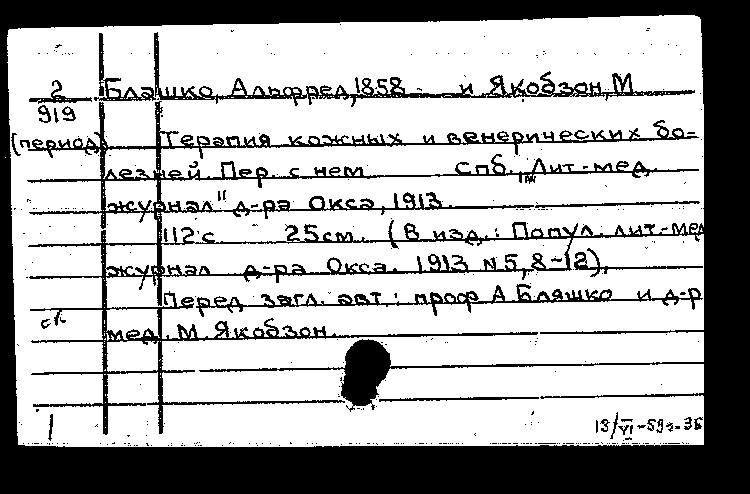 2 Бляшко, Альфред, 1858- и Якобзон, М
919
(период) Терапия кожных и венерических бо=
лезней Пер. с нем Спб., Лит-мед.
журнал" д-ра Окса, 1913.
112 с 25 см. (В изд.: Попул. лит-мед
журнал д-ра Окса. 1913 N 5, 8-12),
Перед загл. авт: проф А. Бляшко и д-р
мед. М. Якобзон.